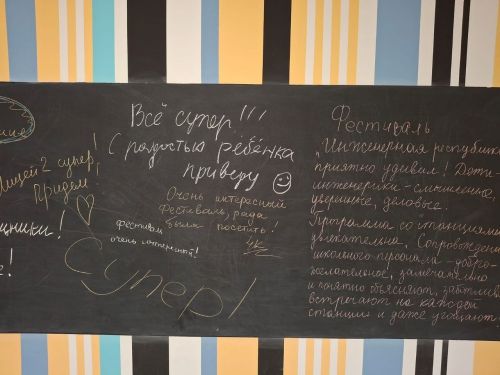 Лицей 2 супер!
Придем!
Всё супер!!!
С радостью ребёнка
приведу
Очень интересный
фестиваль, рада
была посетить!
фестиваль
очень интересный!
Супер!
Фестиваль
"Инженерная республика
приятно удивил! Дети-
инженерики - смышленые,
уверенные, деловые.
Программа со станциями
увлекательна. Сопровожден
школьного персонала - добро-
желательное, замечательно
и понятно объясняют, заботливо
встречают на каждой
станции и даже угощают